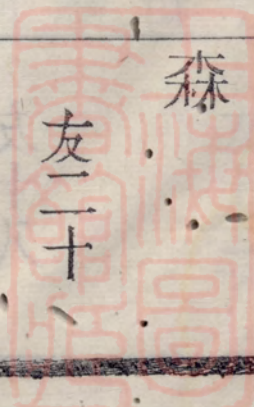 森
友二十